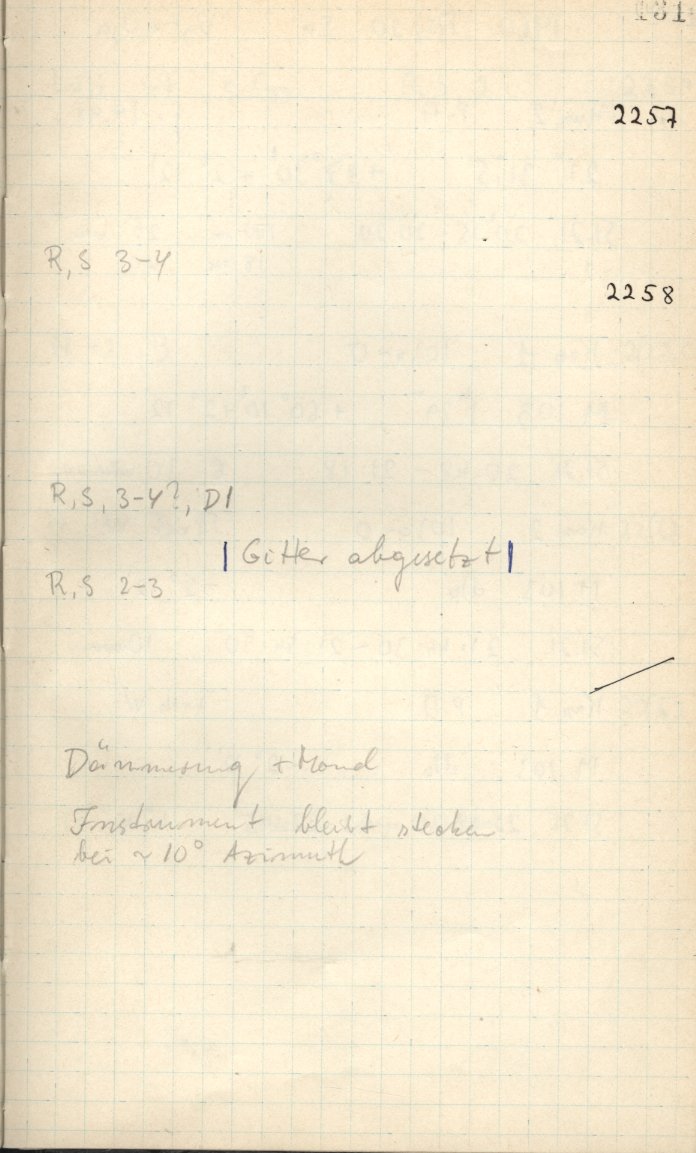 131
2257
R, S 3-4
2258
R, S, 3-4?, D1
| Gitter abgesetzt |
R, S 2-3
Dämmerung + Mond
Instrument bleibt stecken
bei ~ 10° Azimuth